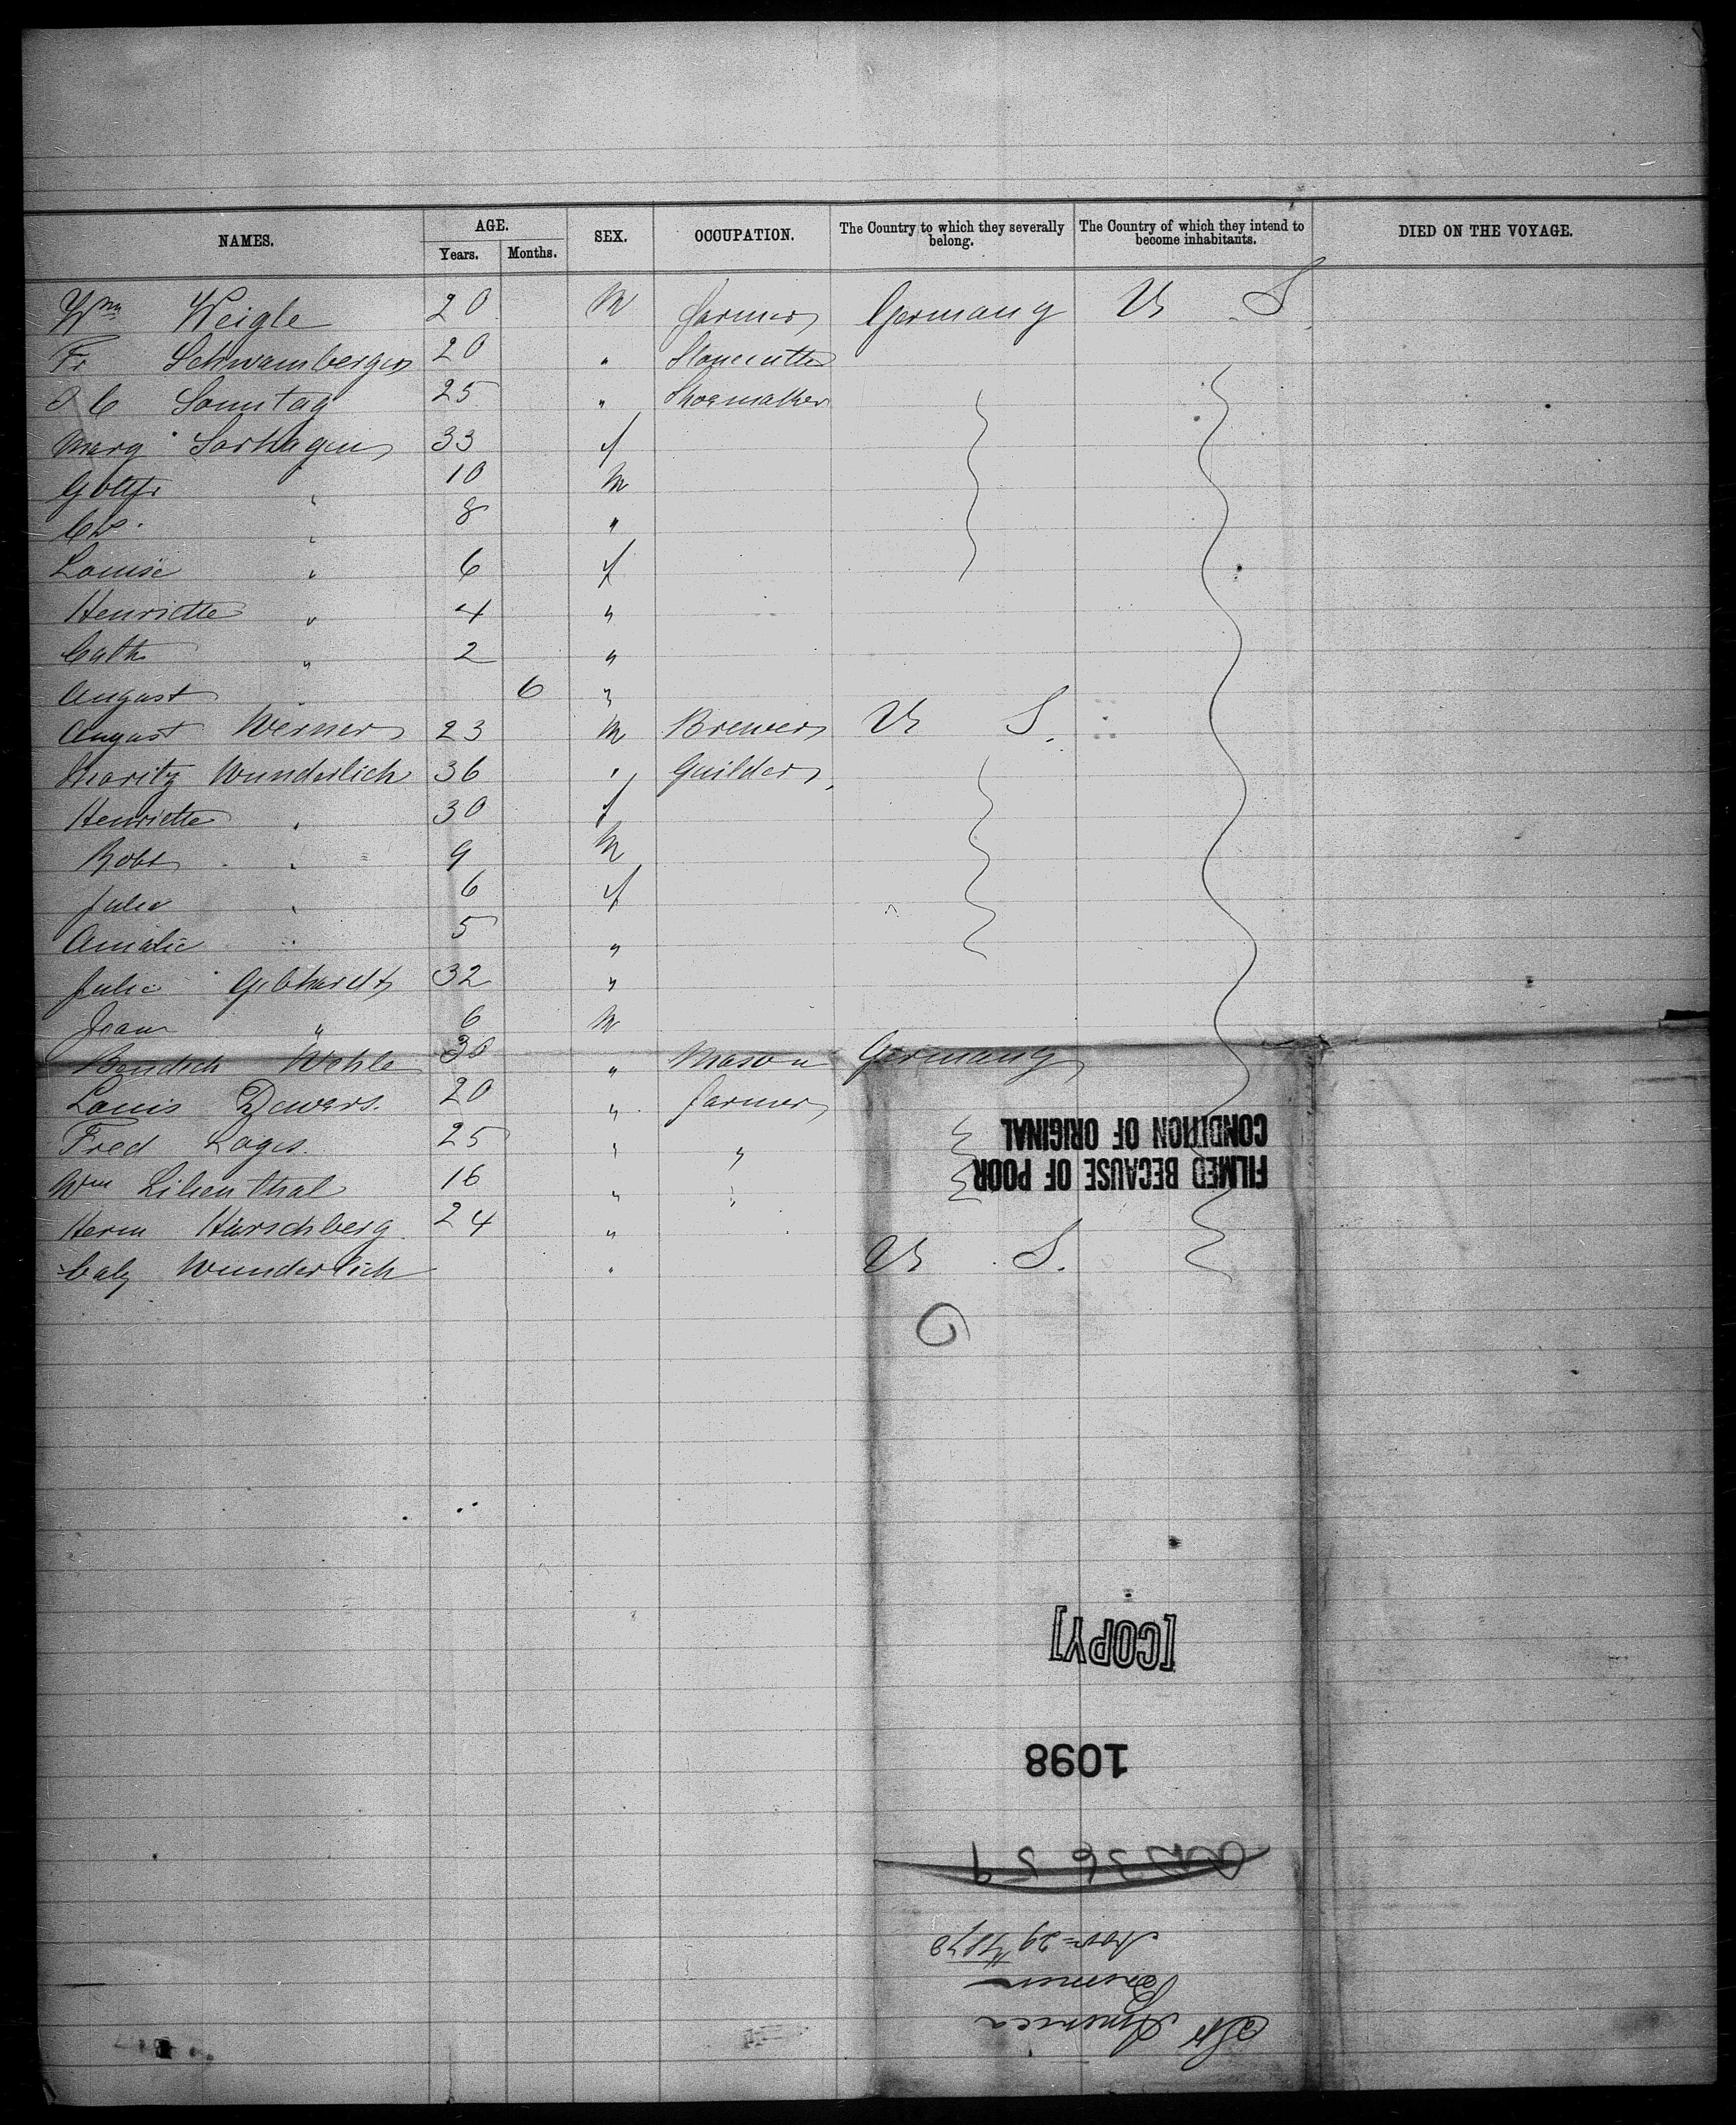 NAMES. AGE. SEX. OCCUPATION. The Country to which they severally belong. The Country of which they intend to become inhabitants. DIED ON THE VOYAGE.
Years. Months.
Wm Weigle 20 M farmer Germany U S
Fr Schwamberger 20 " Stonecutter
Sonntag 25 " Shoemaker
Marg Sarhagen 33 f
Gottfr " 10 M
" 8 "
Louise " 6 f
Henriette " 4 "
Cath " 2 "
August 6 "
August Werner 23 M Brewer U S.
Moritz Wunderlich 36 " Guilder
Henriette " 30 f
Robt " 9 M
Julia " 6 f
Amalie " 5 "
Julie Gebhardt 32 "
Jean " 6 M
Bendich Wohle 30 " Mason Germany
Louis Dewers. 20 " farmer
Fred Lages. 25 " "
Wm Lilienthal 16 " "
Herm Hirschberg 24 "
Wunderlich " U S.
FILMED BECAUSE OF POOR
CONDITION OF ORIGINAL
[COPY]
1098
36 59
Nov 29 1870
Bremen
Str America